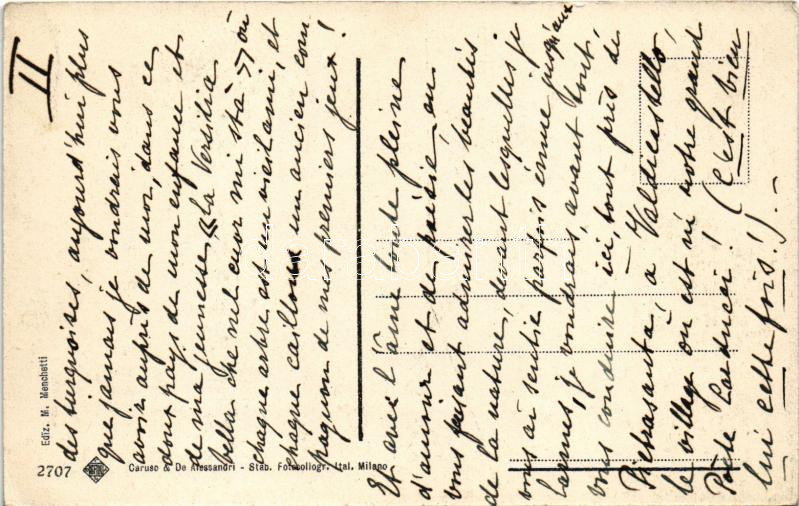 II
des turquoises, aujourd'hui plus
que jamais je voudrais vous
avoir auprès de moi, dans ce
doux pays de mon enfance et
de ma jeunesse, «la Versilia
bella che nel cuor mi sta» où
chaque arbre est un vieil ami, et
chaque caillou un ancien com
pagnon de mes premiers jeux!
Et avec l'âme toute pleine
d'amour et de poésie en
vous faisant admirer les beautés
de la nature, devant lesquelles je
vous ai sentie parfois émue jusqu'aux
larmes, je voudrais, avant tout,
vous conduire ici, tout près de
Pietrasanta, a Valdicastello,
le village où est né notre grand
Poète Carducci! (c'est bien
lui cette fois!).-
Ediz. M. Menchetti
2707
Caruso & De Alessandri - Stab. Fotocollogr. Ital. Milano